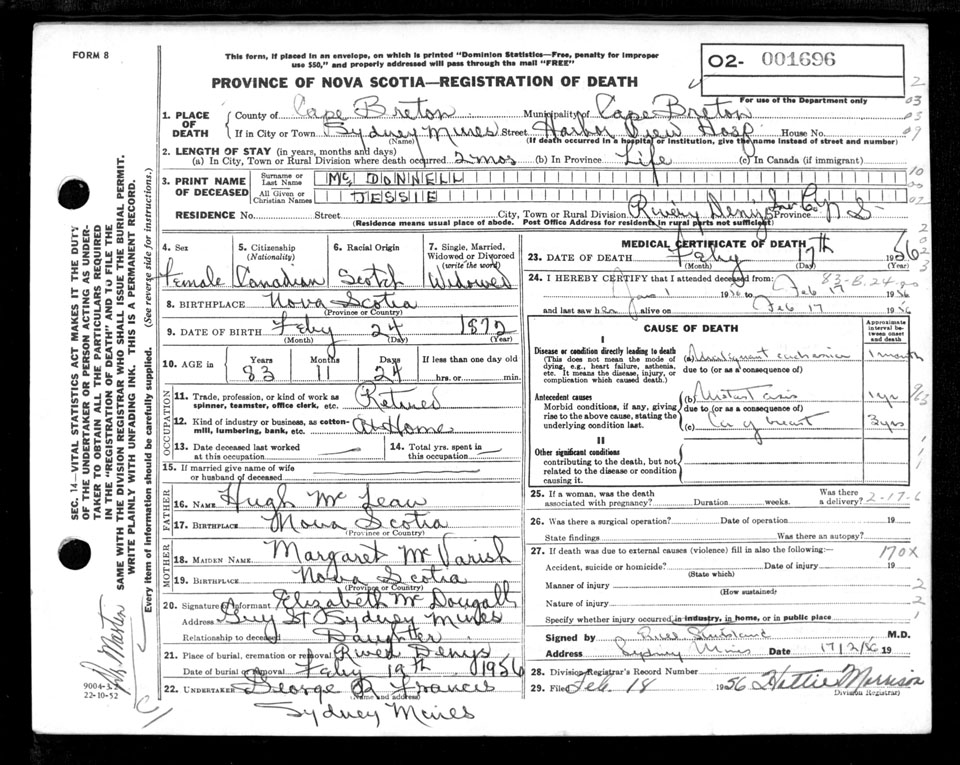 FORM 8
This form, if placed in an envelope, on which is printed "Dominion Statistics—Free, penalty for improper
use $50," and properly addressed will pass through the mail "FREE"
02- 001696
For use of the Department only
PROVINCE OF NOVA SCOTIA—REGISTRATION OF DEATH
1. PLACE OF DEATH
County of Cape Breton Municipality of Cape Breton
If in City or Town Sydney Mines Street Harbor View Hosp House No.
(Name) (If death occurred in a hospital or institution, give the name instead of street and number)
2. LENGTH OF STAY (in years, months and days)
(a) In City, Town or Rural Division where death occurred 2 mos (b) In Province Life (c) In Canada (if immigrant)
3. PRINT NAME OF DECEASED
Surname or Last Name Mc DONNELL
All Given or Christian Names JESSIE
RESIDENCE No. Street City, Town or Rural Division River Denys Inv Co Province N S
(Residence means usual place of abode. Post Office Address for residents in rural parts not sufficient)
4. Sex
Female
5. Citizenship (Nationality)
Canadian
6. Racial Origin
Scotch
7. Single, Married, Widowed or Divorced (write the word)
Widowed
8. BIRTHPLACE Nova Scotia
(Province or Country)
9. DATE OF BIRTH Feby 24 1872
(Month) (Day) (Year)
10. AGE in Years Months Days If less than one day old
83 11 24 hrs. or min.
OCCUPATION
11. Trade, profession, or kind of work as spinner, teamster, office clerk, etc. Retired
12. Kind of industry or business, as cotton-mill, lumbering, bank, etc. At Home
13. Date deceased last worked at this occupation
14. Total yrs. spent in this occupation
15. If married give name of wife or husband of deceased
FATHER
16. NAME Hugh Mc Lean
17. BIRTHPLACE Nova Scotia
(Province or Country)
MOTHER
18. MAIDEN NAME Margaret Mc Varish
19. BIRTHPLACE Nova Scotia
(Province or Country)
20. Signature of informant Elizabeth Mc Dougall
Address Guy St Sydney Mines
Relationship to deceased Daughter
21. Place of burial, cremation or removal River Denys
Date of burial or removal Feby 19th 1956
22. UNDERTAKER George R Francis
(Name and address)
Sydney Mines
MEDICAL CERTIFICATE OF DEATH
23. DATE OF DEATH Feby 17th 1956
(Month) (Day) (Year)
24. I HEREBY CERTIFY that I attended deceased from:
Jan 1 1956 to Feb 17 1956
and last saw her alive on Feb 17 1956
CAUSE OF DEATH
Approximate interval between onset and death
I
Disease or condition directly leading to death
(This does not mean the mode of dying, e.g., heart failure, asthenia, etc. It means the disease, injury, or complication which caused death.)
(a) Malignant cachexia 1 month
due to (or as a consequence of)
Antecedent causes
Morbid conditions, if any, giving rise to the above cause, stating the underlying condition last.
(b) Metastasis 1 yr
due to (or as a consequence of)
(c) Ca of breast 3 yrs
II
Other significant conditions
contributing to the death, but not related to the disease or condition causing it.
25. If a woman, was the death associated with pregnancy? Duration weeks. Was there a delivery?
2-17-6
26. Was there a surgical operation? Date of operation 19
State findings Was there an autopsy?
27. If death was due to external causes (violence) fill in also the following:
170X
Accident, suicide or homicide? Date of injury 19
(State which)
Manner of injury
(How sustained)
Nature of injury
Specify whether injury occurred in industry, in home, or in public place
Signed by M.D.
Address Sydney Mines Date 17/2/56 19
28. Division Registrar's Record Number
29. Filed Feb. 18 1956 Hattie Morrison
Division Registrar
SEC. 14—VITAL STATISTICS ACT MAKES IT THE DUTY
OF THE UNDERTAKER OR PERSON ACTING AS UNDER-
TAKER TO OBTAIN ALL THE PARTICULARS REQUIRED
IN THE "REGISTRATION OF DEATH" AND TO FILE THE
SAME WITH THE DIVISION REGISTRAR WHO SHALL ISSUE THE BURIAL PERMIT.
WRITE PLAINLY WITH UNFADING INK. THIS IS A PERMANENT RECORD.
Every item of information should be carefully supplied. (See reverse side for instructions.)
22-10-52